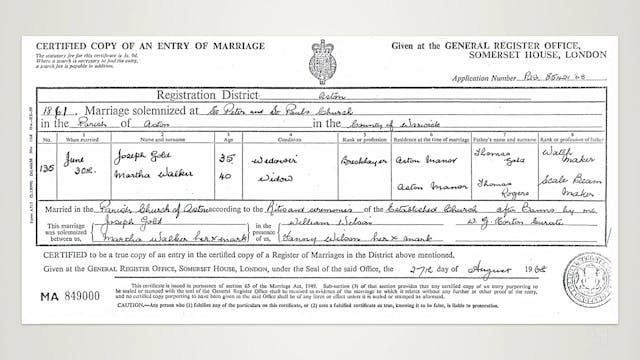 CERTIFIED COPY OF AN ENTRY OF MARRIAGE
Given at the GENERAL REGISTER OFFICE,
SOMERSET HOUSE, LONDON
The statutory fee for this certificate is 3s. 9d.
Where a search is necessary to find the entry,
a search fee is payable in addition.
Application Number
Registration District Aston
1861. Marriage solemnized at St Peter and St Pauls Church
in the Parish of Aston in the County of Warwick
No. When married Name and surname Age Condition Rank or profession Residence at the time of marriage Father's name and surname Rank or profession of father
135 June 30th. Joseph Gold 35 Widower Aston Manor Thomas Gold Watch Maker
Martha Walker 40 Widow Aston Manor Thomas Rogers Scale Beam Maker
Married in the Parish Church of Aston according to the Rites and ceremonies of the Established Church after Banns by me,
This marriage was solemnized between us, Joseph Gold in the presence of us, William Wilson W G Curate
Martha Walker her x mark Fanny Wilson her x mark
CERTIFIED to be a true copy of an entry in the certified copy of a Register of Marriages in the District above mentioned.
Given at the GENERAL REGISTER OFFICE, SOMERSET HOUSE, LONDON, under the Seal of the said Office, the 27th day of August 1968
MA 849000
This certificate is issued in pursuance of section 65 of the Marriage Act, 1949. Sub-section (3) of this section provides that any certified copy of an entry purporting to
be sealed or stamped with the seal of the General Register Office shall be received as evidence of the marriage to which it relates without any further or other proof of the entry,
and no certified copy purporting to have been given in the said Office shall be of any force or effect unless it is sealed or stamped as aforesaid.
CAUTION.—Any person who (1) falsifies any of the particulars on this certificate, or (2) uses a falsified certificate as true, knowing it to be false, is liable to prosecution.